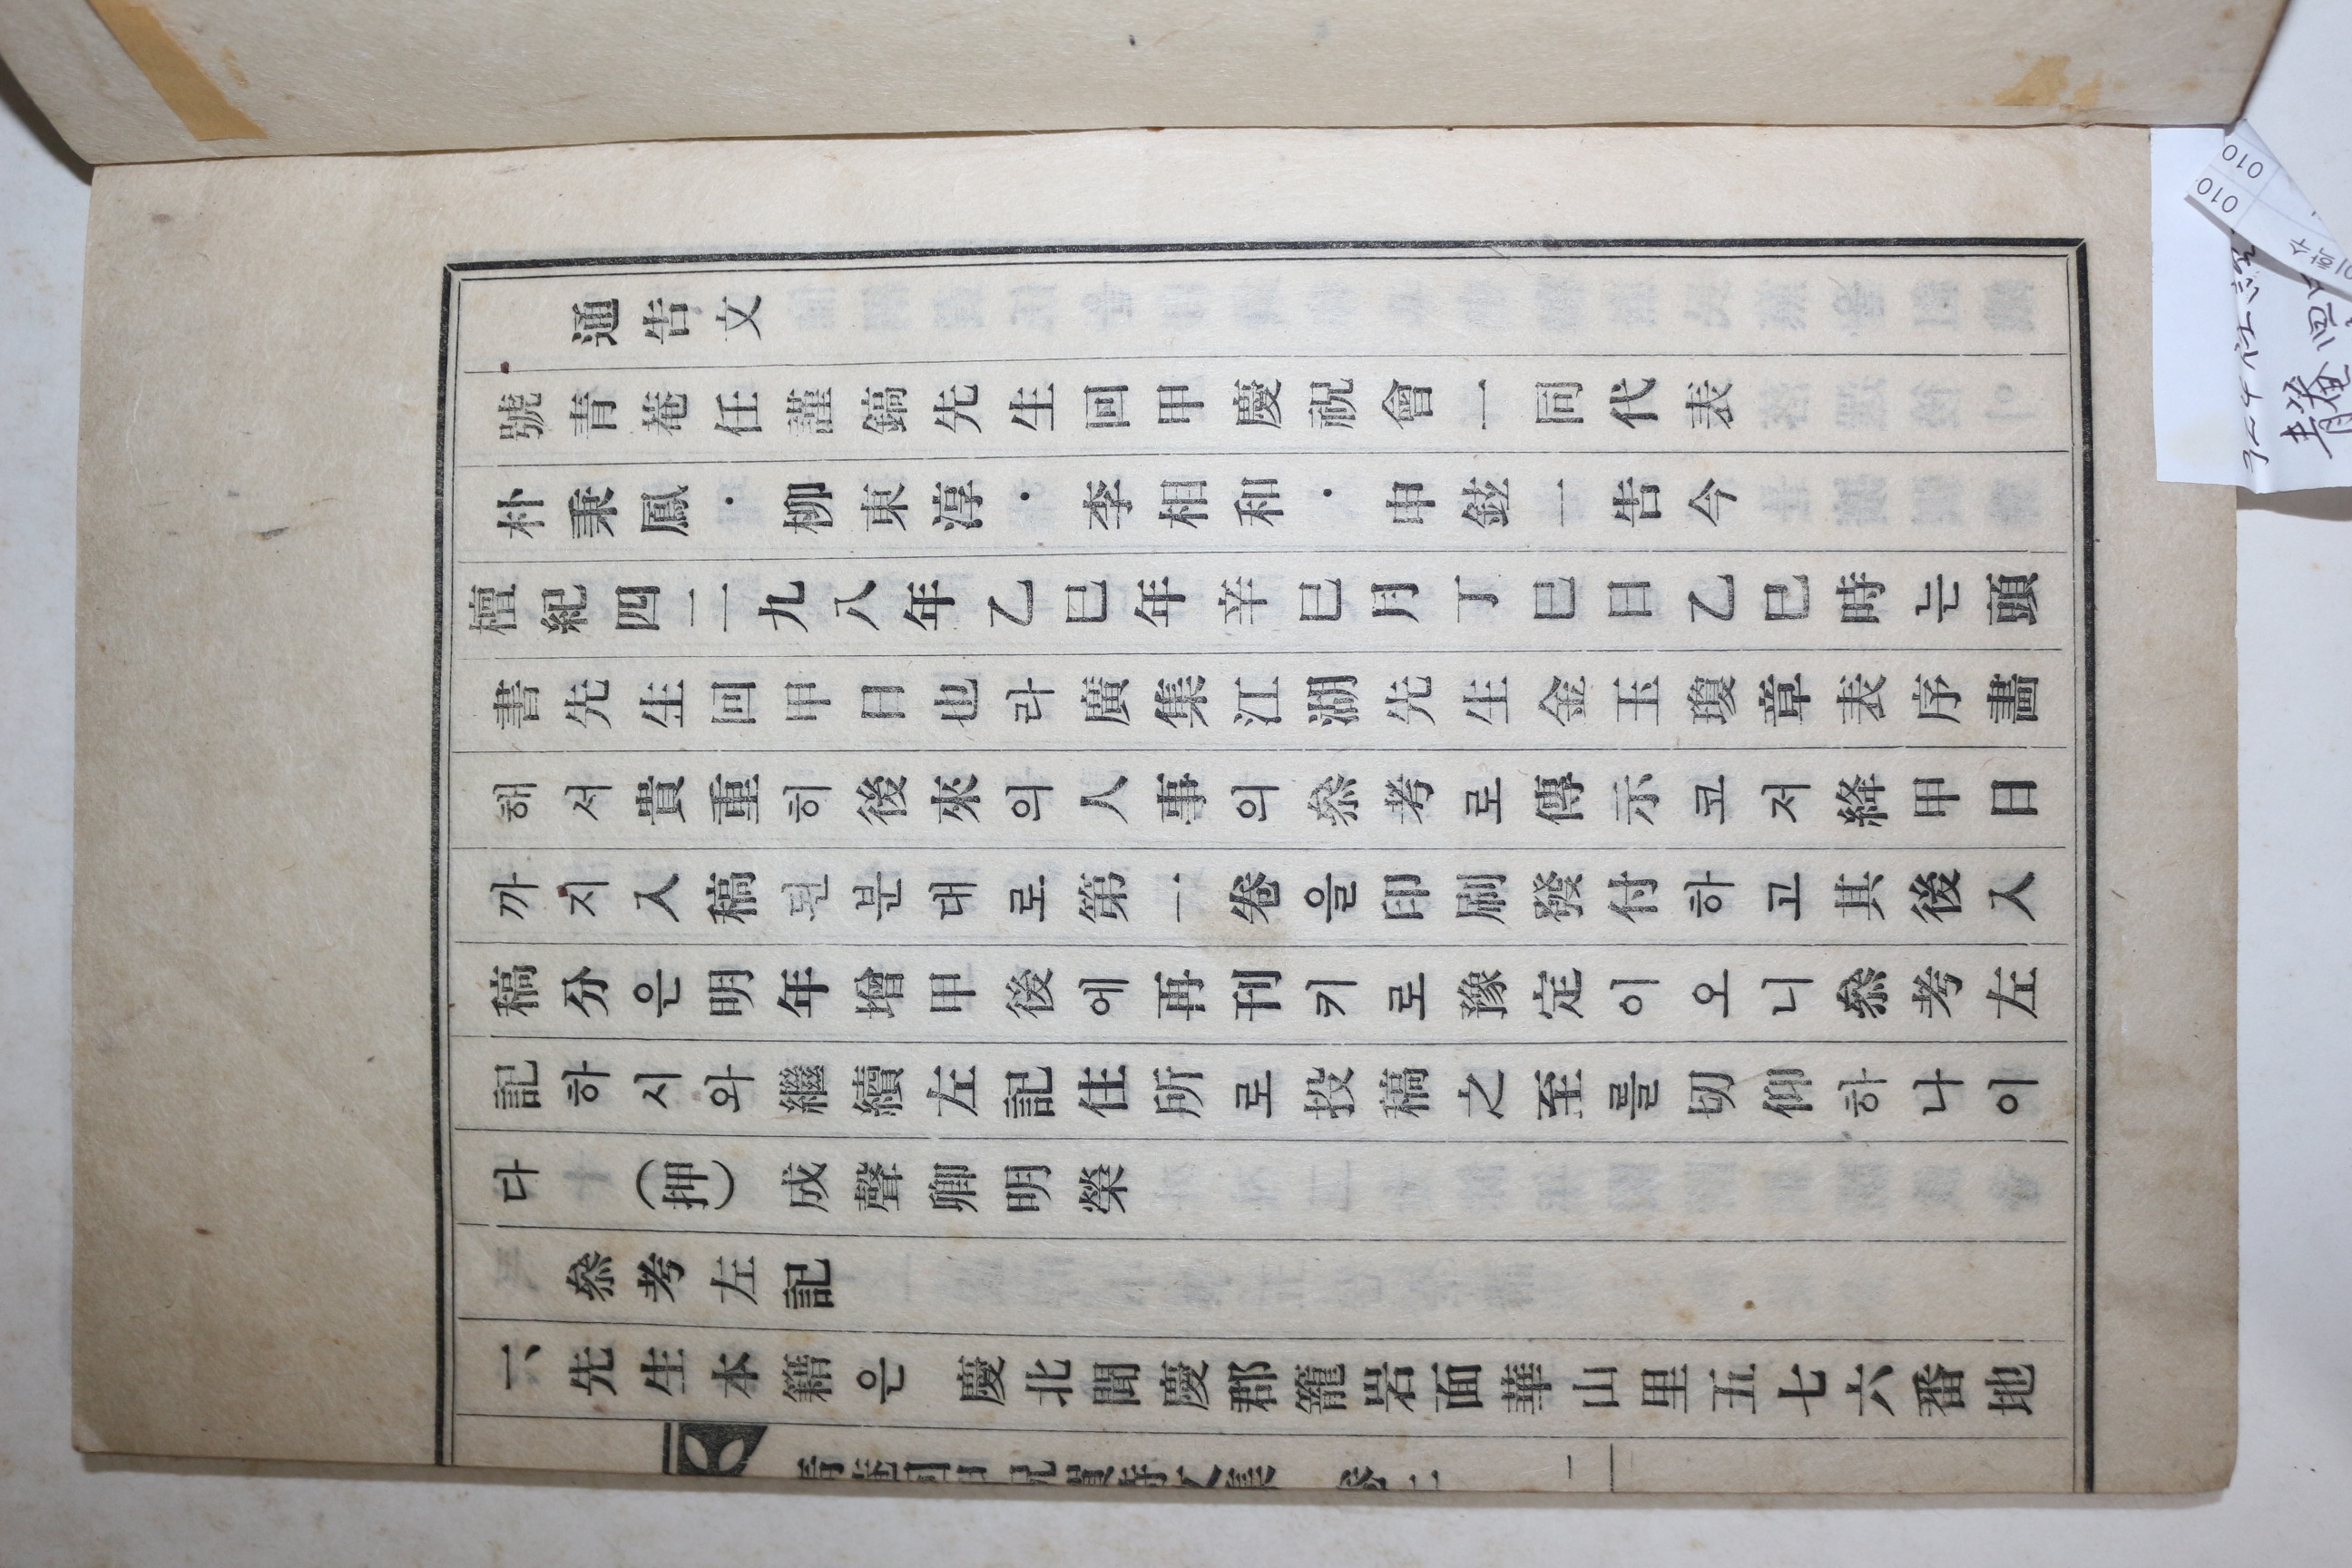 通告文
號青菴任謹鎬先生回甲慶祝會一同代表
朴秉鳳・柳東淳・李相和・申鉉一告今
檀紀四二九八年乙巳年辛巳月丁巳日乙巳時는頭
書先生回甲日也라廣集江湖先生金玉瓊章表序畵
해서貴重히後來의人事의叅考로傳示코저絳甲日
까지入稿된분대로第一卷을印刷發付하고其後入
稿分은明年增甲後에再刊키로豫定이오니叅考左
記하시와繼續左記住所로投稿之至를切仰하나이
다 (押) 成聲卿明榮
叅考左記
一、先生本籍은 慶北聞慶郡籠岩面華山里五七六番地
青菴回甲祝賀詩文集 卷上 二
010
010
이학수
青菴回